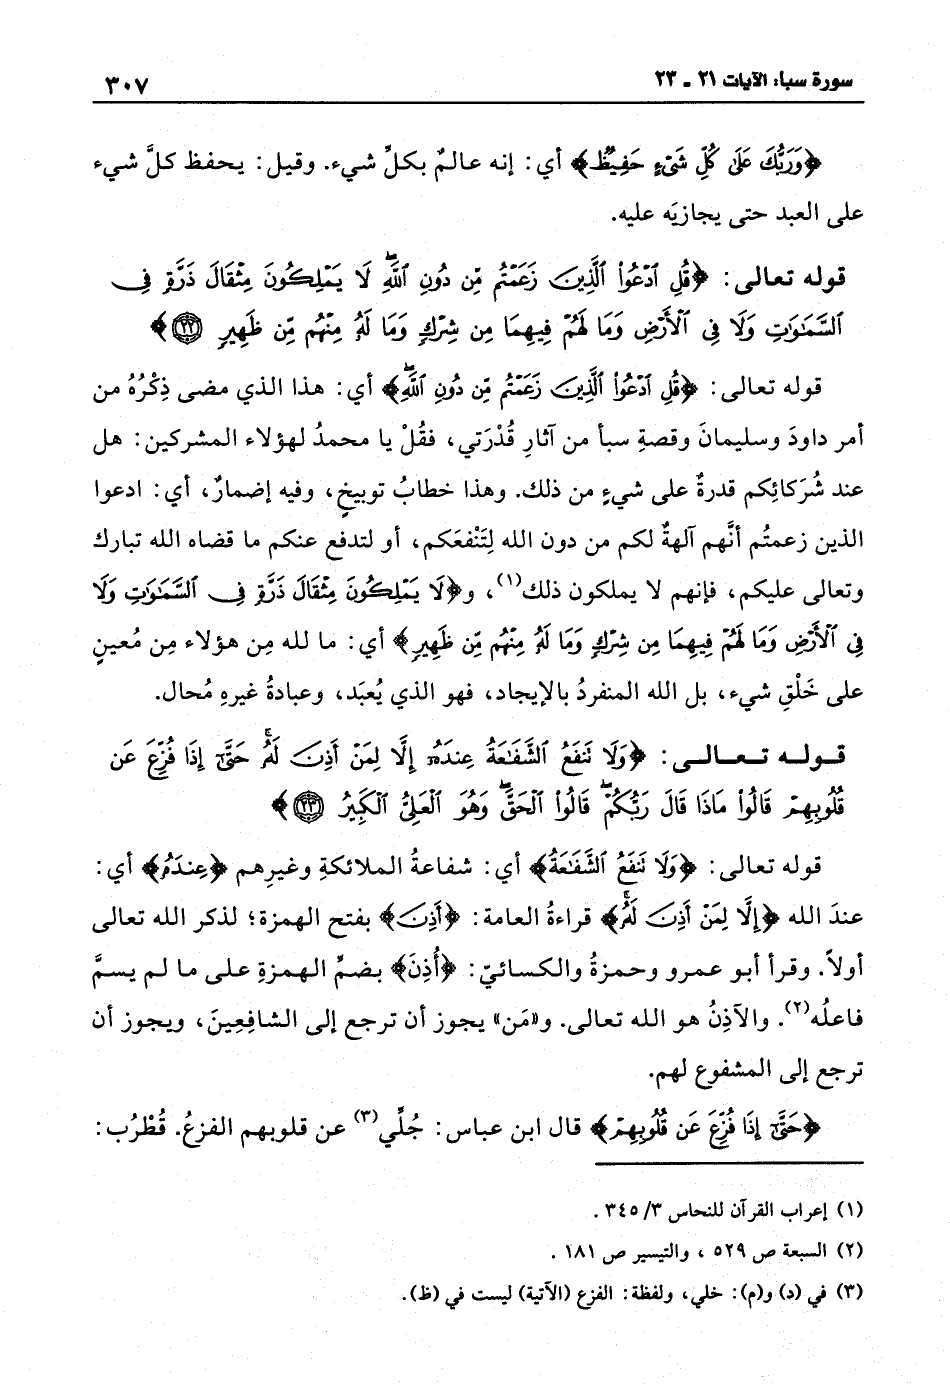 سورة سبأ: الآيات ٢١ - ٢٣
٣٠٧
﴿وَرَبُّكَ عَلَىٰ كُلِّ شَىْءٍ حَفِيظٌ﴾ أي: إنه عالمٌ بكلِّ شيء. وقيل: يحفظ كلَّ شيء
على العبد حتى يجازيَه عليه.
قوله تعالى: ﴿قُلِ ٱدْعُوا۟ ٱلَّذِينَ زَعَمْتُم مِّن دُونِ ٱللَّهِ ۖ لَا يَمْلِكُونَ مِثْقَالَ ذَرَّةٍ فِى
ٱلسَّمَٰوَٰتِ وَلَا فِى ٱلْأَرْضِ وَمَا لَهُمْ فِيهِمَا مِن شِرْكٍ وَمَا لَهُۥ مِنْهُم مِّن ظَهِيرٍ ٢٢﴾
قوله تعالى: ﴿قُلِ ٱدْعُوا۟ ٱلَّذِينَ زَعَمْتُم مِّن دُونِ ٱللَّهِ ۖ﴾ أي: هذا الذي مضى ذِكْرُهُ من
أمر داودَ وسليمانَ وقصةِ سبأ من آثارِ قُدْرَتي، فقُلْ يا محمدُ لهؤلاء المشركين: هل
عند شُرَكائِكم قدرةٌ على شيءٍ من ذلك. وهذا خطابُ توبيخٍ، وفيه إضمارٌ، أي: ادعوا
الذين زعمتُم أنَّهم آلهةٌ لكم من دون الله لِتَنْفعَكم، أو لتدفع عنكم ما قضاه الله تبارك
وتعالى عليكم، فإنهم لا يملكون ذلك(١)، و﴿لَا يَمْلِكُونَ مِثْقَالَ ذَرَّةٍ فِى ٱلسَّمَٰوَٰتِ وَلَا
فِى ٱلْأَرْضِ وَمَا لَهُمْ فِيهِمَا مِن شِرْكٍ وَمَا لَهُۥ مِنْهُم مِّن ظَهِيرٍ﴾ أي: ما لله مِن هؤلاء مِن مُعينٍ
على خَلْقِ شيء، بل الله المنفردُ بالإيجاد، فهو الذي يُعبَد، وعبادةُ غيرِهِ مُحال.
قوله تعالى: ﴿وَلَا تَنفَعُ ٱلشَّفَٰعَةُ عِندَهُۥٓ إِلَّا لِمَنْ أَذِنَ لَهُۥ ۚ حَتَّىٰٓ إِذَا فُزِّعَ عَن
قُلُوبِهِمْ قَالُوا۟ مَاذَا قَالَ رَبُّكُمْ ۖ قَالُوا۟ ٱلْحَقَّ ۖ وَهُوَ ٱلْعَلِىُّ ٱلْكَبِيرُ ٢٣﴾
قوله تعالى: ﴿وَلَا تَنفَعُ ٱلشَّفَٰعَةُ﴾ أي: شفاعةُ الملائكةِ وغيرِهم ﴿عِندَهُۥٓ﴾ أي:
عندَ الله ﴿إِلَّا لِمَنْ أَذِنَ لَهُۥ ۚ﴾ قراءةُ العامة: ﴿أَذِنَ﴾ بفتح الهمزة؛ لذكر الله تعالى
أولاً. وقرأ أبو عمرو وحمزةُ والكسائيّ: ﴿أُذِنَ﴾ بضمِّ الهمزةِ على ما لم يسمَّ
فاعلُه(٢). والآذِنُ هو الله تعالى. و«مَن» يجوز أن ترجع إلى الشافِعِينَ، ويجوز أن
ترجع إلى المشفوع لهم.
﴿حَتَّىٰٓ إِذَا فُزِّعَ عَن قُلُوبِهِمْ﴾ قال ابن عباس: جُلِّي(٣) عن قلوبهم الفزعُ. قُطْرُب:
(١) إعراب القرآن للنحاس ٣/ ٣٤٥ .
(٢) السبعة ص ٥٢٩ ، والتيسير ص ١٨١ .
(٣) في (د) و(م): خلي، ولفظة: الفزع (الآتية) ليست في (ظ).